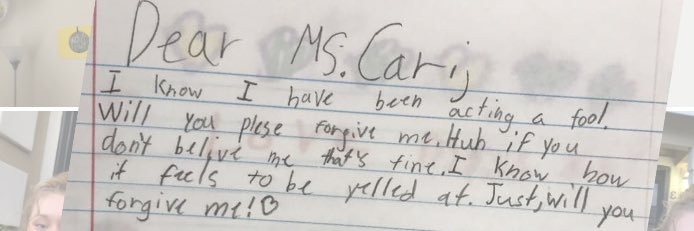 Dear Ms. Cari,
I know I have been acting a fool.
Will you plese forgive me. Huh if you
don't belive me that's fine. I know how
it feels to be yelled at. Just, will you
forgive me!♡